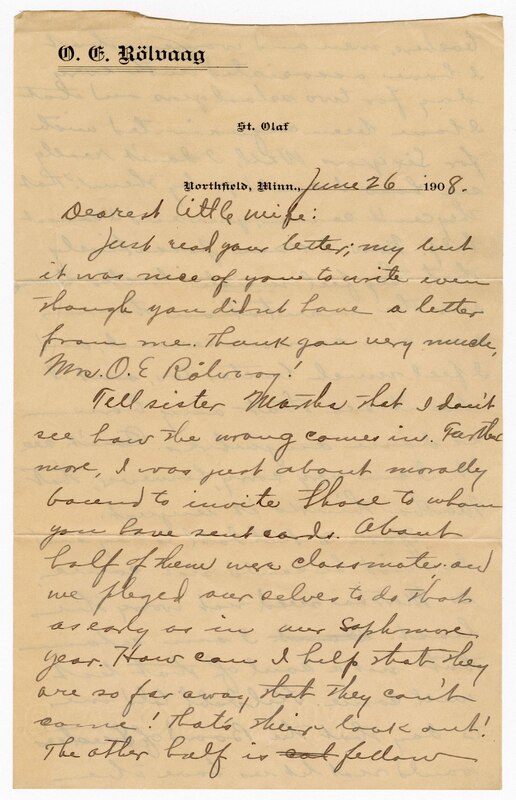 O. E. Rölvaag
St. Olaf
Northfield, Minn., June 26 1908.
Dearest little wife:
Just read your letter; my but
it was nice of you to write even
though you didnt have a letter
from me. Thank you very much,
Mrs. O. E Rölvaag!
Tell sister Martha that I don't
see how the wrong comes in. Farther
more, I was just about morally
bound to invite those to whom
you have sent cards. About
half of them were classmates and
we pleged our selves to do that
as early as in our sophmore
year. How can I help that they
are so far away, that they can't
come! That's their look out!
The other half is fellow